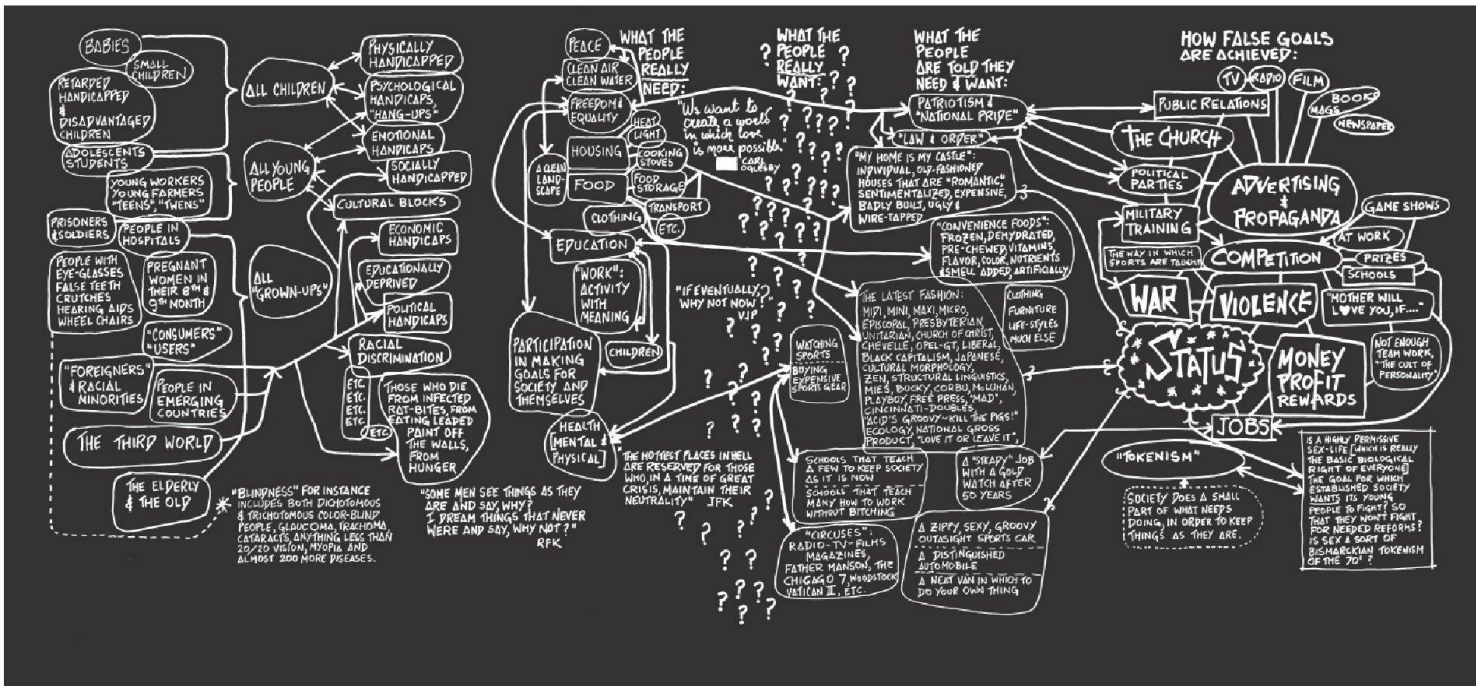 BABIES
SMALL
CHILDREN
RETARDED
HANDICAPPED
&
DISADVANTAGED
CHILDREN
ADOLESCENTS
STUDENTS
YOUNG WORKERS
YOUNG FARMERS
"TEENS", "TWENS"
PRISONERS
& SOLDIERS
PEOPLE IN
HOSPITALS
PEOPLE WITH
EYE-GLASSES
FALSE TEETH
CRUTCHES
HEARING AIDS
WHEEL CHAIRS
PREGNANT
WOMEN IN
THEIR 8TH &
9TH MONTH
"CONSUMERS"
"USERS"
"FOREIGNERS"
& RACIAL
MINORITIES
PEOPLE IN
EMERGING
COUNTRIES
THE THIRD WORLD
THE ELDERLY
& THE OLD
ALL CHILDREN
ALL YOUNG
PEOPLE
ALL
"GROWN-UPS"
PHYSICALLY
HANDICAPPED
PSYCHOLOGICAL
HANDICAPS,
"HANG-UPS"
EMOTIONAL
HANDICAPS
SOCIALLY
HANDICAPPED
CULTURAL BLOCKS
ECONOMIC
HANDICAPS
EDUCATIONALLY
DEPRIVED
POLITICAL
HANDICAPS
RACIAL
DISCRIMINATION
ETC.
ETC.
ETC.
ETC.
ETC.
ETC.
THOSE WHO DIE
FROM INFECTED
RAT-BITES, FROM
EATING LEADED
PAINT OFF
THE WALLS,
FROM
HUNGER
* "BLINDNESS" FOR INSTANCE
INCLUDES BOTH DICHOTOMOUS
& TRICHOTOMOUS COLOR-BLIND
PEOPLE, GLAUCOMA, TRACHOMA
CATARACTS, ANYTHING LESS THAN
20/20 VISION, MYOPIA AND
ALMOST 200 MORE DISEASES.
WHAT THE
PEOPLE
REALLY
NEED:
PEACE
CLEAN AIR
CLEAN WATER
FREEDOM &
EQUALITY
HEAT
LIGHT
HOUSING
COOKING
STOVES
A CLEAN
LAND-
SCAPE
FOOD
FOOD
STORAGE
CLOTHING
TRANSPORT
ETC.
EDUCATION
"WORK":
ACTIVITY
WITH
MEANING
PARTICIPATION
IN MAKING
GOALS FOR
SOCIETY AND
THEMSELVES
CHILDREN
HEALTH
[MENTAL &
PHYSICAL]
"SOME MEN SEE THINGS AS THEY
ARE AND SAY, WHY?
I DREAM THINGS THAT NEVER
WERE AND SAY, WHY NOT?"
RFK
"THE HOTTEST PLACES IN HELL
ARE RESERVED FOR THOSE
WHO, IN A TIME OF GREAT
CRISIS, MAINTAIN THEIR
NEUTRALITY"
JFK
"We want to
create a world
in which love
is more possible"
CARL
OGLESBY
WHAT THE
PEOPLE
REALLY
WANT:
"IF EVENTUALLY,
WHY NOT NOW?"
VJP
WHAT THE
PEOPLE
ARE TOLD THEY
NEED & WANT:
PATRIOTISM &
"NATIONAL PRIDE"
"LAW & ORDER"
"MY HOME IS MY CASTLE":
INDIVIDUAL, OLD-FASHIONED
HOUSES THAT ARE "ROMANTIC",
SENTIMENTALIZED, EXPENSIVE,
BADLY BUILT, UGLY &
WIRE-TAPPED
"CONVENIENCE FOODS":
FROZEN, DEHYDRATED,
PRE-CHEWED, VITAMINS,
FLAVOR, COLOR, NUTRIENTS
& SMELL ADDED ARTIFICIALLY
THE LATEST FASHION:
MIDI, MINI, MAXI, MICRO,
EPISCOPAL, PRESBYTERIAN,
UNITARIAN, CHURCH OF CHRIST,
CHEVELLE, OPEL-GT, LIBERAL,
BLACK CAPITALISM, JAPANESE,
CULTURAL MORPHOLOGY,
ZEN, STRUCTURAL LINGUISTICS,
MIES, BUCKY, CORBU, McLUHAN,
PLAYBOY, FREE PRESS, "MAD",
CINCINNATI-DOUBLES,
"ACID'S GROOVY—KILL THE PIGS!"
ECOLOGY, NATIONAL GROSS
PRODUCT, "LOVE IT OR LEAVE IT",
CLOTHING
FURNITURE
LIFE-STYLES
MUCH ELSE
WATCHING
SPORTS
BUYING
EXPENSIVE
SPORTS GEAR
SCHOOLS THAT TEACH
A FEW TO KEEP SOCIETY
AS IT IS NOW
SCHOOLS THAT TEACH
MANY HOW TO WORK
WITHOUT BITCHING
A "STEADY" JOB
WITH A GOLD
WATCH AFTER
50 YEARS
"CIRCUSES":
RADIO-TV-FILMS
MAGAZINES,
FATHER MANSON, THE
CHICAGO 7, WOODSTOCK
VATICAN II, ETC.
A ZIPPY, SEXY, GROOVY
OUTASIGHT SPORTS CAR
A DISTINGUISHED
AUTOMOBILE
A NEAT VAN IN WHICH TO
DO YOUR OWN THING
HOW FALSE GOALS
ARE ACHIEVED:
TV
RADIO
FILM
BOOKS
MAGS
NEWSPAPER
PUBLIC RELATIONS
THE CHURCH
POLITICAL
PARTIES
ADVERTISING
&
PROPAGANDA
MILITARY
TRAINING
GAME SHOWS
AT WORK
THE WAY IN WHICH
SPORTS ARE TAUGHT
COMPETITION
PRIZES
SCHOOLS
WAR
VIOLENCE
"MOTHER WILL
L♥VE YOU, IF...."
STATUS
MONEY
PROFIT
REWARDS
NOT ENOUGH
TEAM WORK,
"THE CULT OF
PERSONALITY"
JOBS
"TOKENISM"
SOCIETY DOES A SMALL
PART OF WHAT NEEDS
DOING, IN ORDER TO KEEP
THINGS AS THEY ARE.
IS A HIGHLY PERMISSIVE
SEX-LIFE [WHICH IS REALLY
THE BASIC BIOLOGICAL
RIGHT OF EVERYONE]
THE GOAL FOR WHICH
ESTABLISHED SOCIETY
WANTS ITS YOUNG
PEOPLE TO FIGHT? SO
THAT THEY WON'T FIGHT
FOR NEEDED REFORMS?
IS SEX A SORT OF
BISMARCKIAN TOKENISM
OF THE 70s?